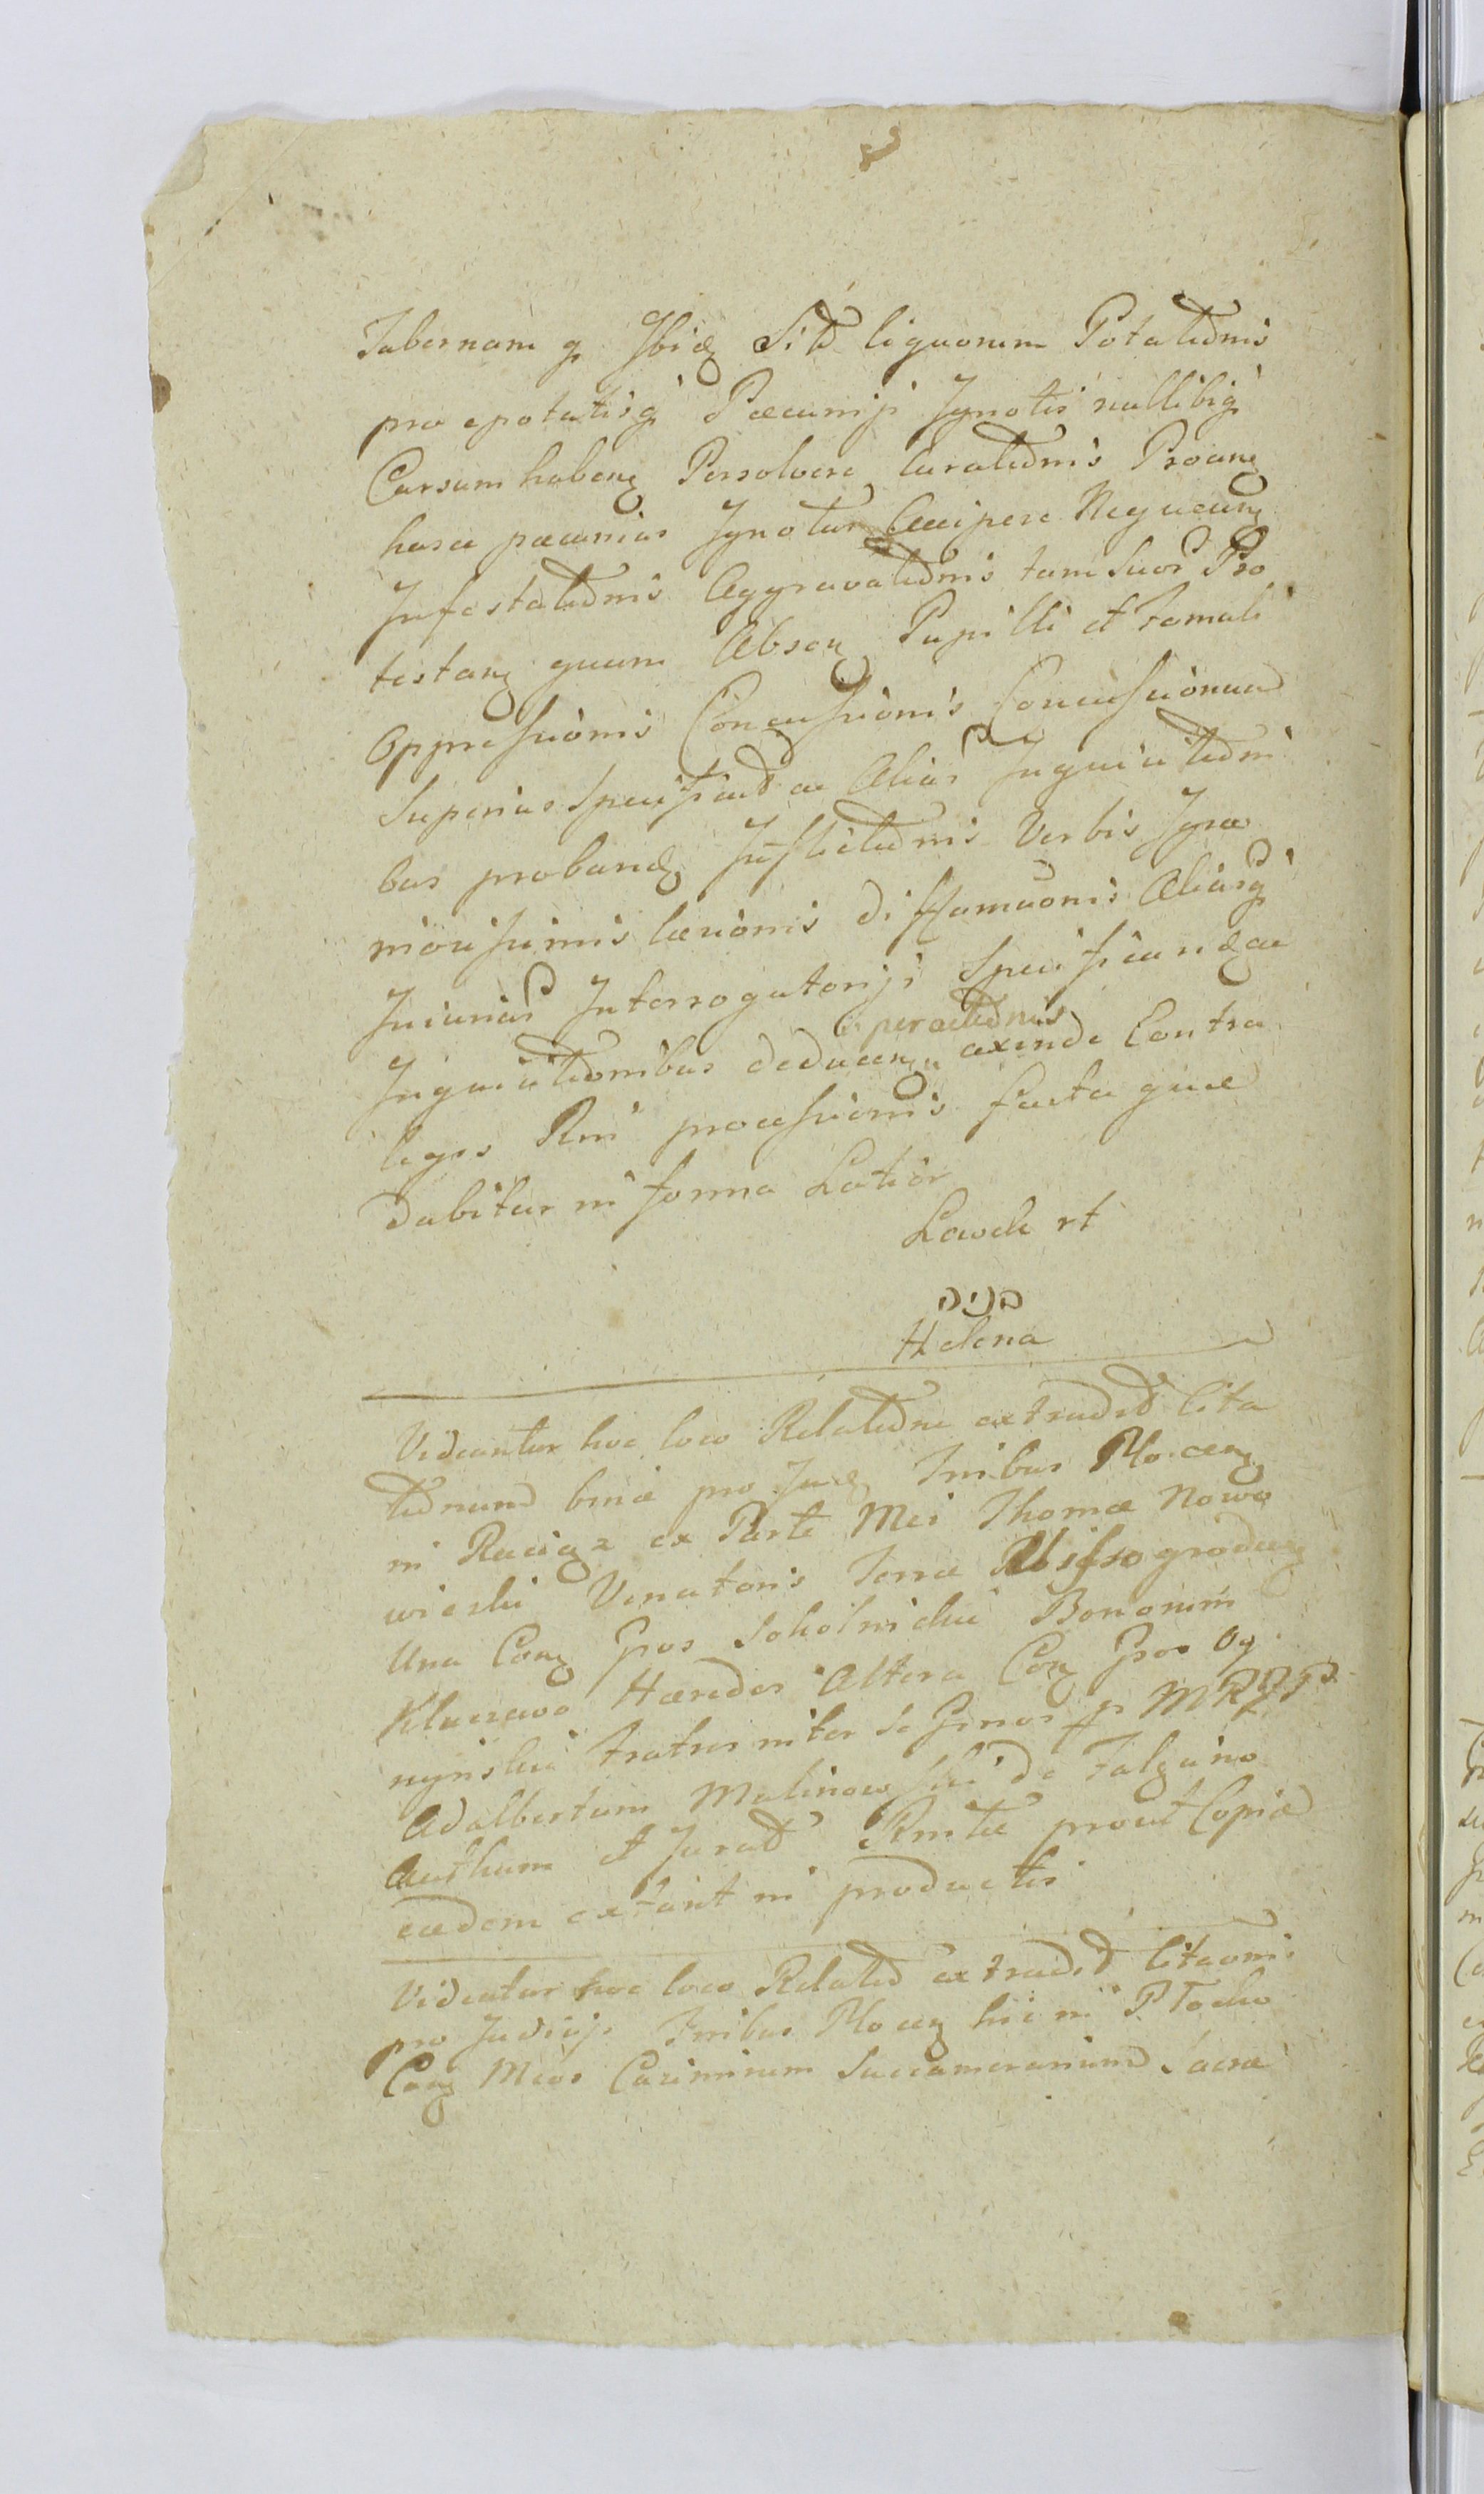 Tabernam q Ibiq Sit liquorum Potationis
pro epotatisq Pecunijs Ignotis nullibiq
Cursum haben Persolvere Curationis Proan
hasce pecunias Ignotas Accipere Nequeun
Infestationis Aggravationis tam Suor Pro
testan quam Absen Pupilli et Famuli
Oppressionis Concussionis Concussionum
Superius Specificat ac Alias Inquisitioni
bus proband Inflictionis Verbis Igno
miniosissimis læsionis diffamaonis Aliasq
Iniurias Interrogatorijs Specificand ac
Inquisitionibus deducen peractionis exinde Contra
leges Rni processionis facta quæ
dabitur in forma Latior
Lewek rt
הניה
Helena
Videantur hoc loco Relatione extradit Cita
tionum binæ pro Jud Tribus Plocen
in Raciąż ex Parte Mei Thomæ Nowo
wieski Venatoris Terræ Wissogroden
Una Con Gsos Sokolnickie Bonorum
Kluczewo Hæredes Altera Con Gsos Og
nynskie Fratres inter Se Grnos p MRJP
Adalbertum Malinowski de Falęcino
Authum et Jurat Rmtu prout Copiæ
eædem extant in productis
Videatur hoc loco Relatio extradit Citaonis
pro Judicijs Tribus Plocen hic in Płocko
Con Meos Casimirum Succamerarium Sacræ